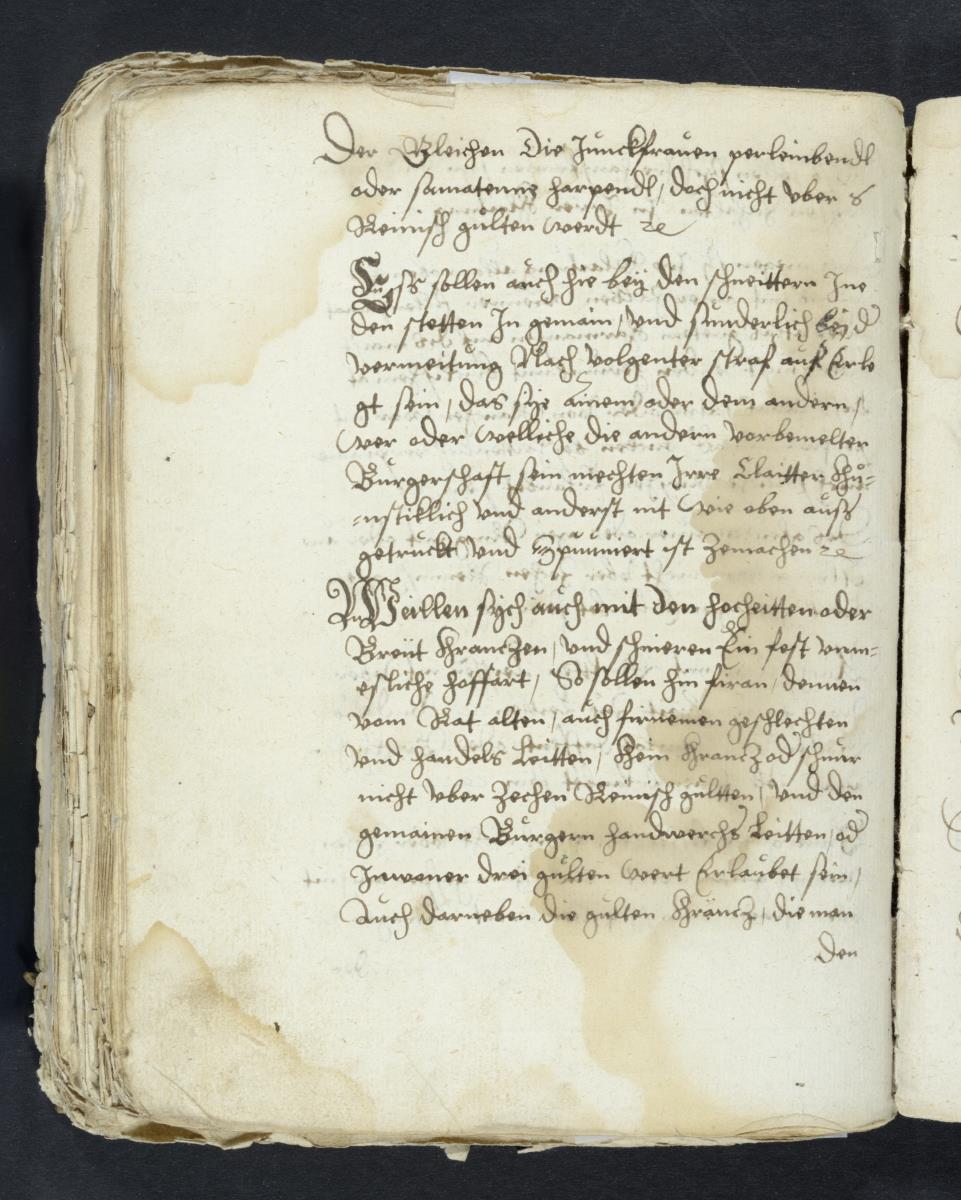 Der Gleichen Die Junckfrauen perleinbendl
oder samatenne harpendl, doch nicht vber 8
Reinisch gulten werdt ꝛc
Ess sollen auch hie bey den schneittern Jnn
den stetten Jn gemain, vnd sunderlich bey d
vermeitung Nach volgenter straf auf Erle
gt sein, das sye ainem oder dem andern,
wer oder welliche die andern vorbemelter
Burgerschaft sein mechten Jrre Claitter khu-
-nstiklich vnd anderst nit wie oben auss
getruckt vnd ist zemachen ꝛc
Weillen sych auch mit den hocheitten oder
Breut Kranczen, vnd schnieren Ein fast vnm-
esliche hoffart, So sollen hin firan, dennen
vom Rat alten, auch firnemen geschlechten
vnd handels Leitten, khein Krancz od schnur
nicht vber Zechen Reinisch gultten, vnd den
gemainen Burgern handwerchs Leitten, od
Jnwoner drei gulten wert Erlaubet sein,
Auch darneben die gulten Kräncz, die man
den